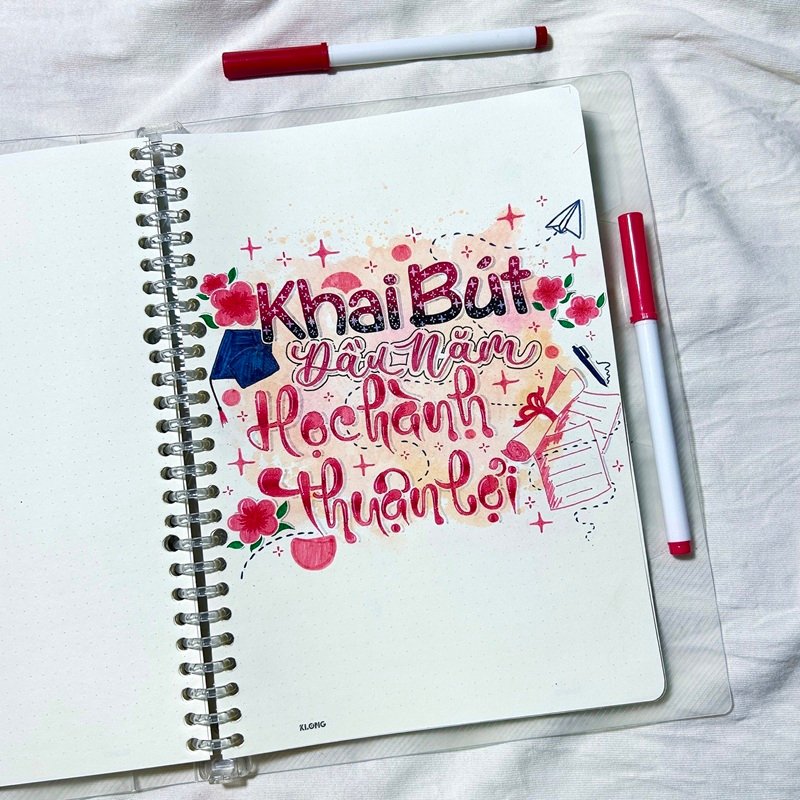 Khai Bút
Đầu Năm
Học hành
Thuận lợi
KLONG